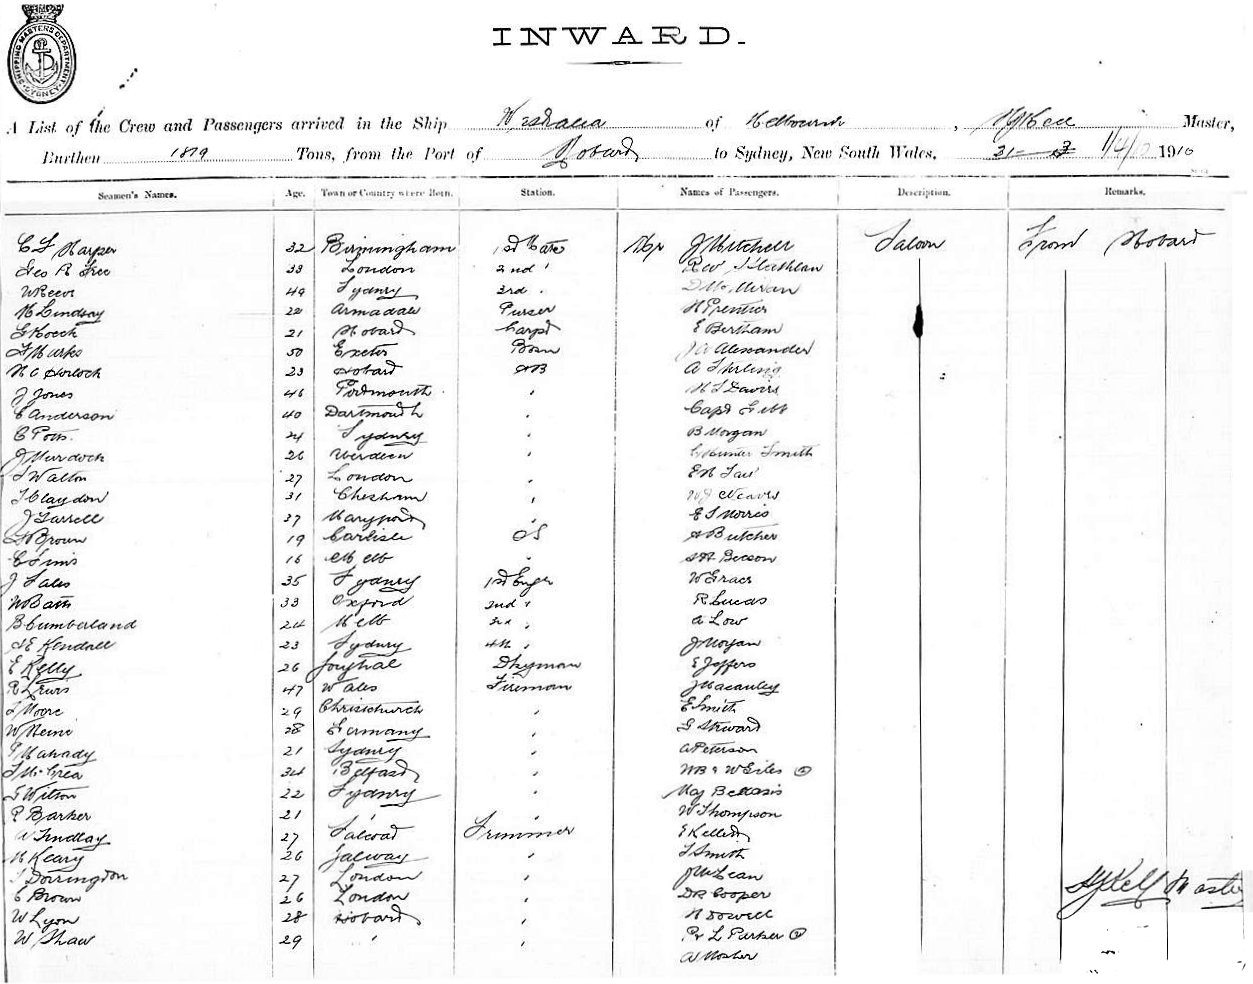 SHIPPING MASTERS DEPARTMENT SYDNEY
INWARD.
A List of the Crew and Passengers arrived in the Ship Westralia of Melbourne, Master,
Burthen 1819 Tons, from the Port of Hobart to Sydney, New South Wales, 31-3 1/4/10 1910
Seamen's Names. Age. Town or Country where Born. Station. Names of Passengers. Description. Remarks.
C F Harper 32 Birmingham 1st Mate J Mitchell Saloon From Hobart
Geo R Free 33 London 2nd " Rev
W Reeve 49 Sydney 3rd " D McMillan
H Lindsay 22 Armadale Purser H Prentice
21 Hobart Carpt E Bertham
F Marks 50 Exeter Bosn J A Alexander
H C Horlock 23 Hobart AB A Stirling
J Jones 46 Portmouth " H S Davies
C Anderson 40 Dartmouth " Capt Gibb
C Potts. 24 Sydney " B Morgan
J Murdoch 26 " Smith
S Walton 27 London " E H Tait
T Claydon 31 Chesham " W J Weaver
J Farrell 37 Maryport " E S Morris
Brown 19 Carlisle OS A Butcher
C Sims 16 Melb " Beeson
J Sales 35 Sydney 1st Engr W Grace
W Batts 33 Oxford 2nd " R Lucas
B Cumberland 24 Melb 3rd " A Low
Kendall 23 Sydney 4th " J Moyan
E Kelly 26 Dkyman E Jeffers
R Lewis 47 Wales Fireman J Macauley
T Moore 29 Christchurch " E Smith
W Heine 28 Germany " G Steward
P Mahady 21 Sydney " A Peterson
T McCrea 34 Belfast " W B & W Giles (2)
T Wilson 22 Sydney " Maj Bellasis
R Barker 21 " " W Thompson
A Findlay 27 Trimmer E Kellett
M Keary 26 Galway " T Smith
T Dorrington 27 London " J McLean
C Brown 26 London " D R Cooper
W Lyon 28 Hobart " H Dowell
W Shaw 29 " " P & L Parker (2)
A Mosher
Master